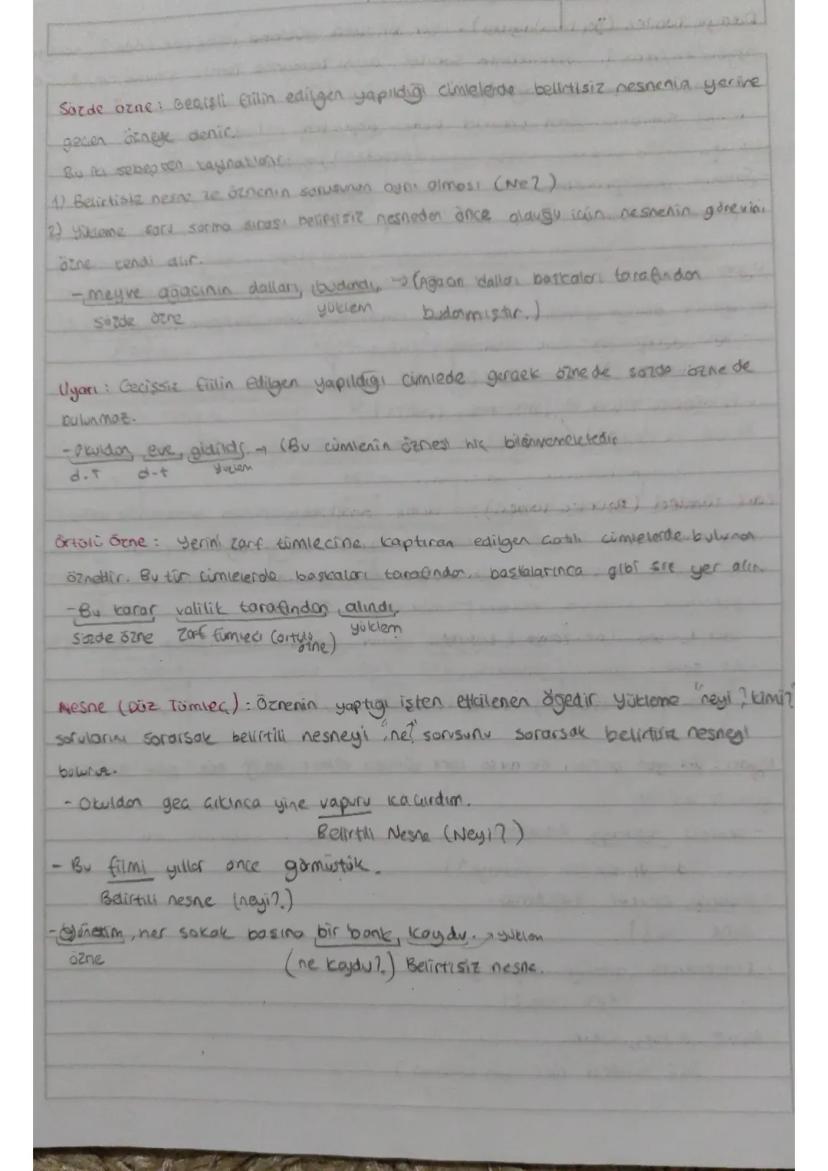 Sözde özne: Geçişli fiilin edilgen yapıldığı cümlelerde belirtisiz nesnenin yerine
geçen özneye denir.
Bu iki sebepten kaynaklanır:
1) Belirtisiz nesne ile öznenin sorusunun aynı olması (Ne?)
2) Yükleme soru sorma sırası belirtisiz nesneden önce olduğu için nesnenin görevini
özne kendi alır.
- meyve ağacının dalları, budandı, → (Ağacın dalları başkaları tarafından
sözde özne yüklem budanmıştır.)
Uyarı: Geçişsiz fiilin edilgen yapıldığı cümlede gerçek öznede sözde öznede
bulunmaz.
- Okuldan, eve, gidildi → (Bu cümlenin öznesi hiç bilinmemektedir
d.t d.t yüklem
Örtülü Özne: Yerini zarf tümlecine kaptıran edilgen çatılı cümlelerde bulunan
öznedir. Bu tür cümlelerde başkaları tarafından, başkalarınca gibi yer alır.
- Bu karar valilik tarafından, alındı,
sözde özne zarf tümleci (örtülü özne) yüklem
Nesne (Düz Tümleç): Öznenin yaptığı işten etkilenen öğedir yükleme "neyi? kimi?"
sorularını sorarsak belirtili nesneyi "ne?" sorusunu sorarsak belirtisiz nesneyi
buluruz.
- Okuldan geç çıkınca yine vapuru kaçırdım.
Belirtili Nesne (Neyi?)
- Bu filmi yıllar önce görmüştük.
Belirtili nesne (neyi?)
- Yönetim, her sokak başına bir bank, koydu. → yüklem
özne (ne koydu?) Belirtisiz nesne.